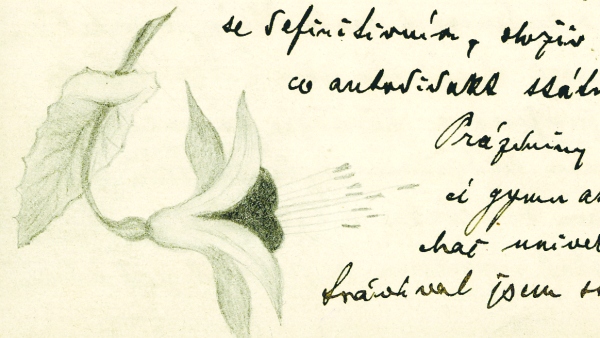 se definitivním, složiv
co autodidakt stát
Prázdniny
či gymna
chať univer
trávíval jsem s